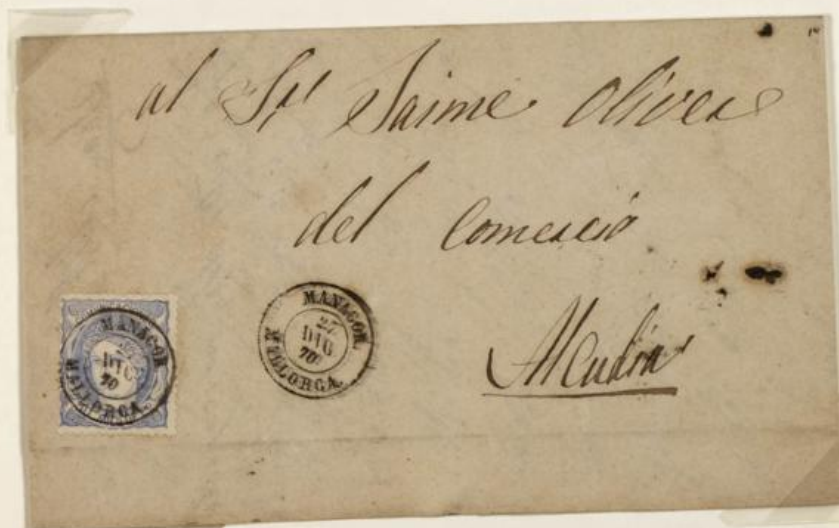 al Sr Jaime Oliver
del Comercio
Alcudia
MANACOR.
27
DIC
70
MALLORCA.
MANACOR
DIC
70
MALLORCA.